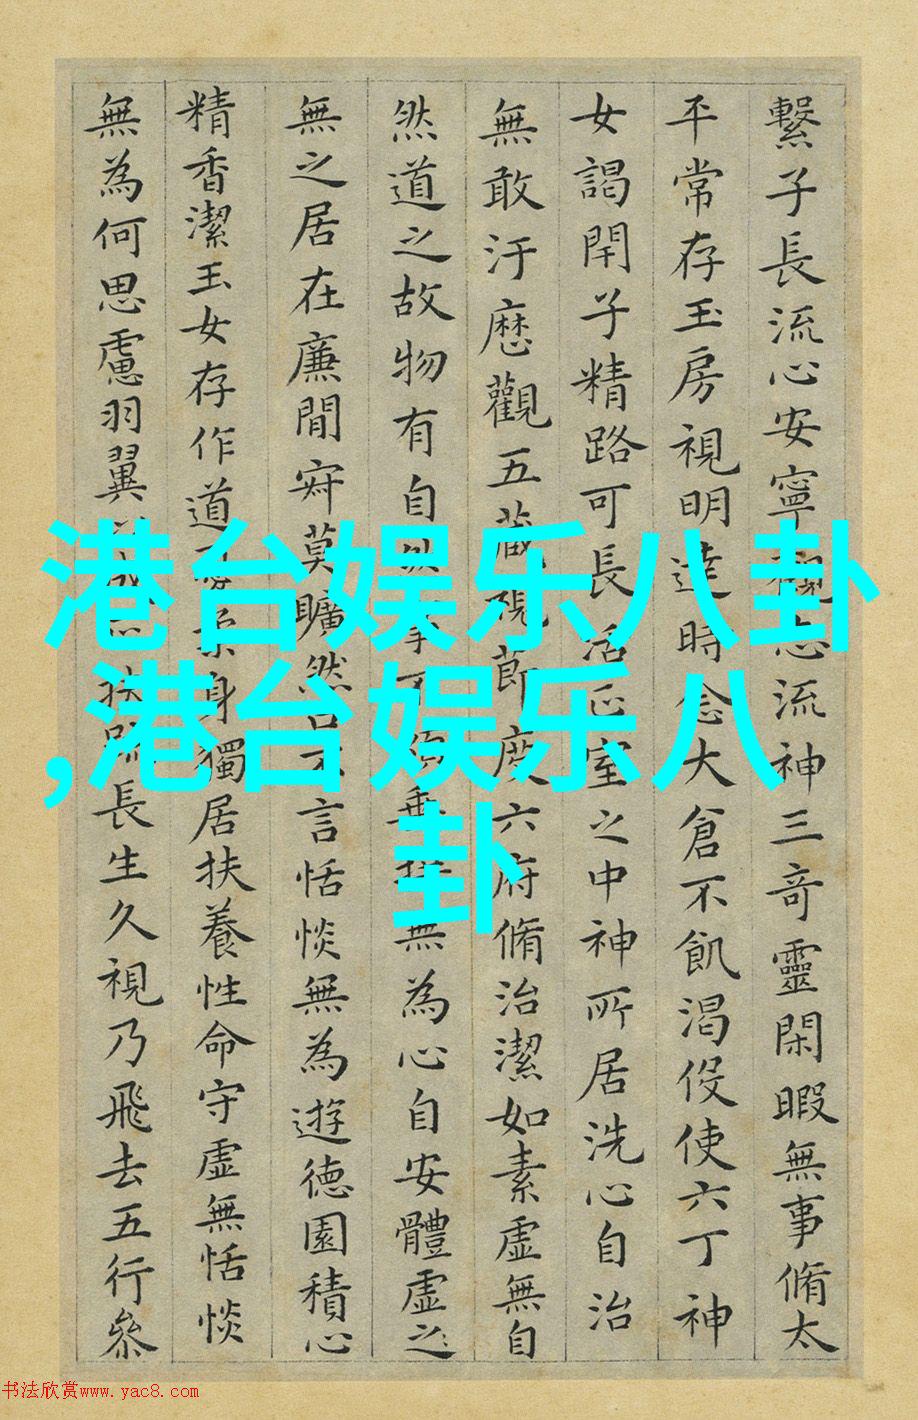 繫子長流心安寧觀志流神三奇靈閑暇無事脩太
平常存玉房視明達時念大倉不飢渴伇使六丁神
女謁閇子精路可長活正室之中神所居洗心自治
無敢汙歷觀五藏視節度六府脩治潔如素虛無自
然道之故物有自然事不煩垂拱無為心自安體虛之
無之居在廉間寂莫曠然口不言恬惔無為遊德園積心
精香潔玉女存作道憂柔身獨居扶養性命守虛無恬惔
無為何思慮羽翼以成正扶疏長生久視乃飛去五行叅
港台娱乐八卦
,港台娱乐八
卦
书法欣赏www.yac8.com